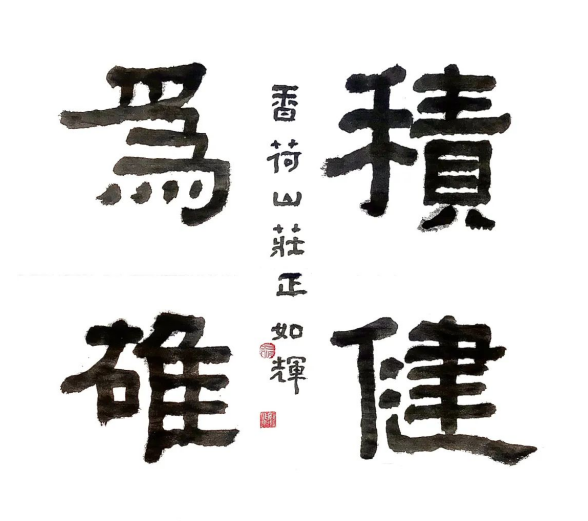 積健
爲雄
香荷山莊正如輝